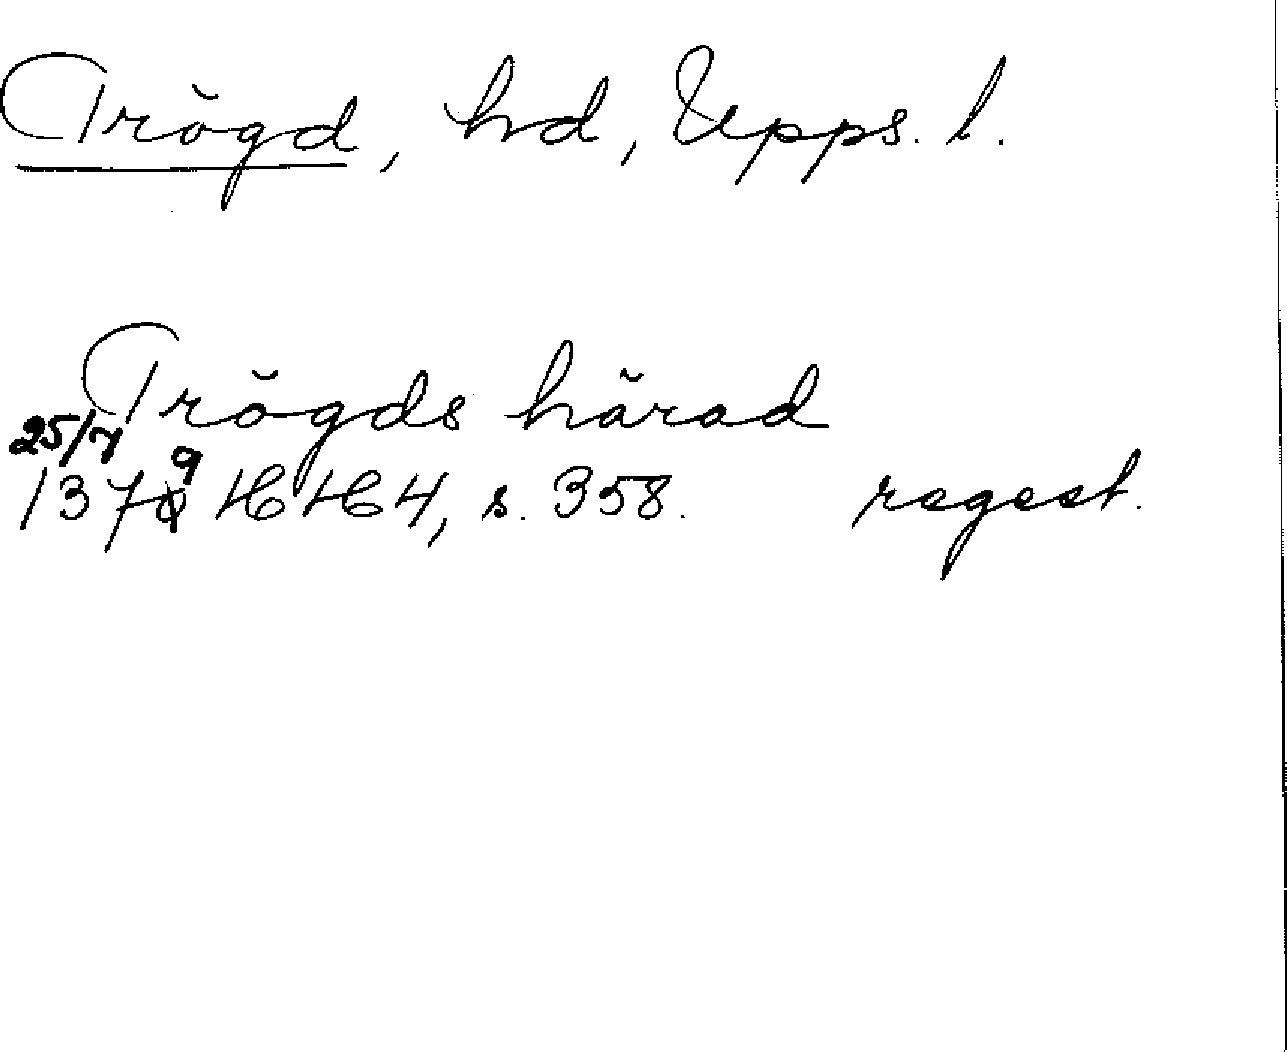 Trögd, hd, Upps. l.
Trögds härad
25/7
1379 HH 4, s. 358. regest.